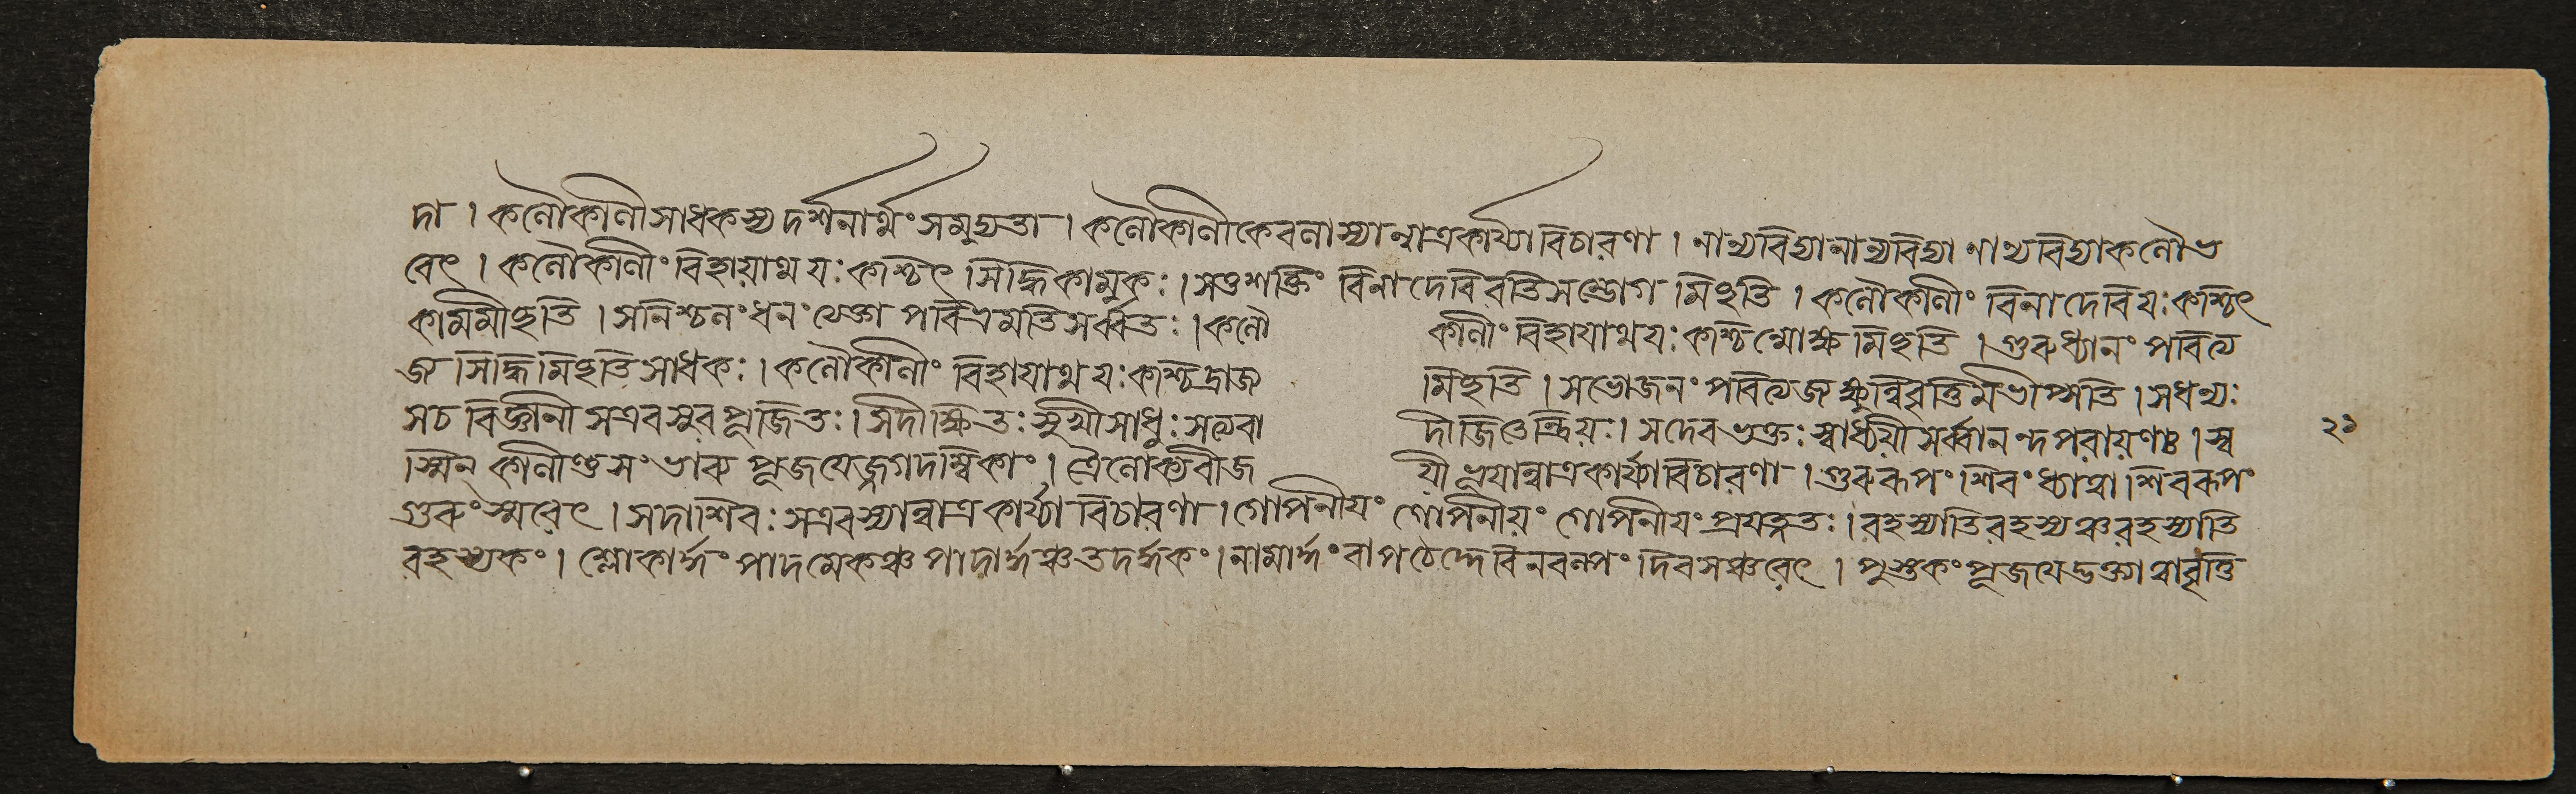 দা । কলৌকালীসাধকস্য দর্শনার্থং সমুদ্যতা । কলৌকালীকেবলাস্যান্নাত্রকার্য্যাবিচারণা । নান্যবিদ্যানান্যবিদ্যা নান্যবিদ্যাকলৌভ
বেৎ । কলৌকালীং বিহায়াথ যঃ কশ্চিৎ সিদ্ধিকামুকঃ । সতুশক্তিং বিনাদেবিরতিসম্ভোগ মিচ্ছতি । কলৌকালীং বিনাদেবিযঃ কশ্চিৎ
কামমীচ্ছতি । সনিশ্চলং ধনং ত্যেক্তা পরিভ্রমতিসর্ব্বতঃ । কলৌ কালীং বিহায়াথযঃ কশ্চিন্মোক্ষ মিচ্ছতি । গুরুধ্যানং পরিত্য
জ্য সিদ্ধিমিচ্ছতিসাধকঃ । কলৌকালীং বিহায়াথ যঃ কশ্চিদ্রাজ্য মিচ্ছতি । সভোজনং পরিত্যজ্য ক্ষুন্নিবৃত্তিমভীপ্সতি । সধন্যঃ
সচ বিজ্ঞানী সএবসুরপূজিতঃ । সদীক্ষিতঃ সুখীসাধুঃ সত্যবা দীজিতেন্দ্রিয়ঃ । সদেবভক্তঃ স্বাধ্যায়ী সর্ব্বানন্দপরায়ণঃ । স্ব
স্মিন্ কালীন্তুসংভাব্য পূজয়েজ্জগদম্বিকাং । ত্রৈলোক্যবীজ য়ী ভূয়ান্নাত্রকার্য্যাবিচারণা । গুরুরূপং শিবং ধ্যাত্বা শিবরূপং
গুরুং স্মরেৎ । সদাশিবঃ সএবস্যান্নাত্র কার্য্যা বিচারণা । গোপনীয়ং গোপনীয়ং গোপনীয়ং প্রযত্নতঃ । রহস্যাতিরহস্যঞ্চরহস্যাতি
রহস্যকং । শ্লোকার্দ্ধং পাদমেকঞ্চ পাদার্দ্ধঞ্চতদর্দ্ধকং । নামার্দ্ধং বাপঠেদ্দেবিনবন্ধ্যং দিবসঞ্চরেৎ । পুস্তকং পূজয়েদ্ভক্ত্যাত্বরিতং
২১